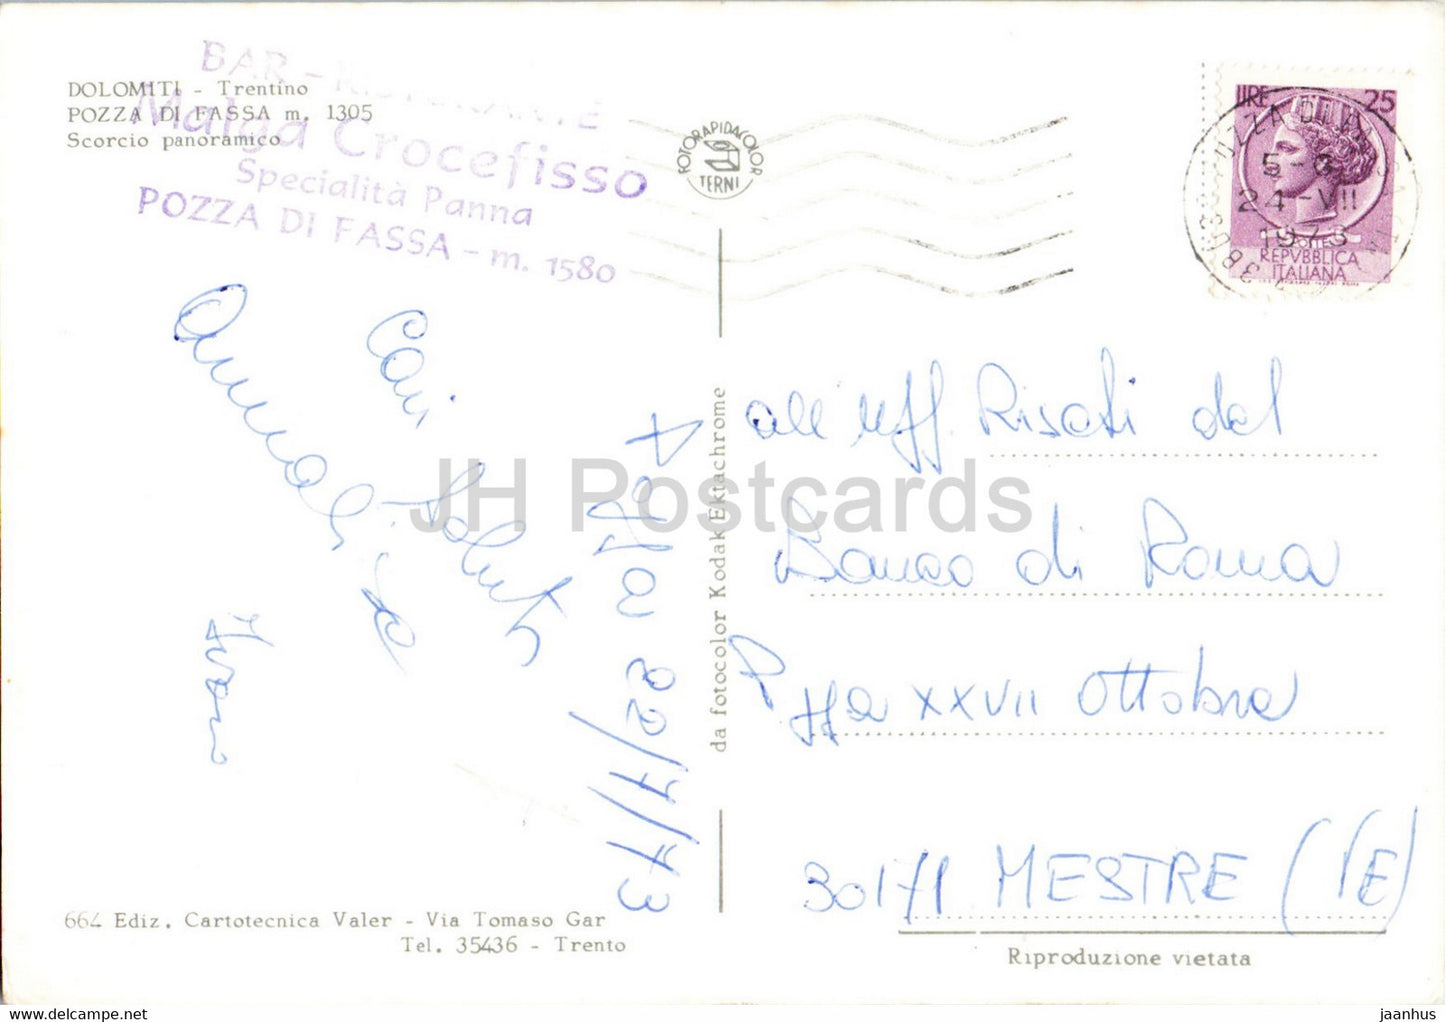 DOLOMITI - Trentino
POZZA DI FASSA m. 1305
Scorcio panoramico
BAR - RISTORANTE
Malga Crocefisso
Specialità Panna
POZZA DI FASSA - m. 1580
FOTORAPIDACOLOR
TERNI
LIRE 25
5-6
24-VII
1973
REPVBBLICA
ITALIANA
38036
Cari Saluti
Annalisa
22/7/73
da fotocolor Kodak Ektachrome
all'Uff. Risati del
Banco di Roma
P.zza XXVII Ottobre
30171 MESTRE (VE)
664 Ediz. Cartotecnica Valer - Via Tomaso Gar
Tel. 35436 - Trento
Riproduzione vietata
JH Postcards
jaanhus
www.delcampe.net